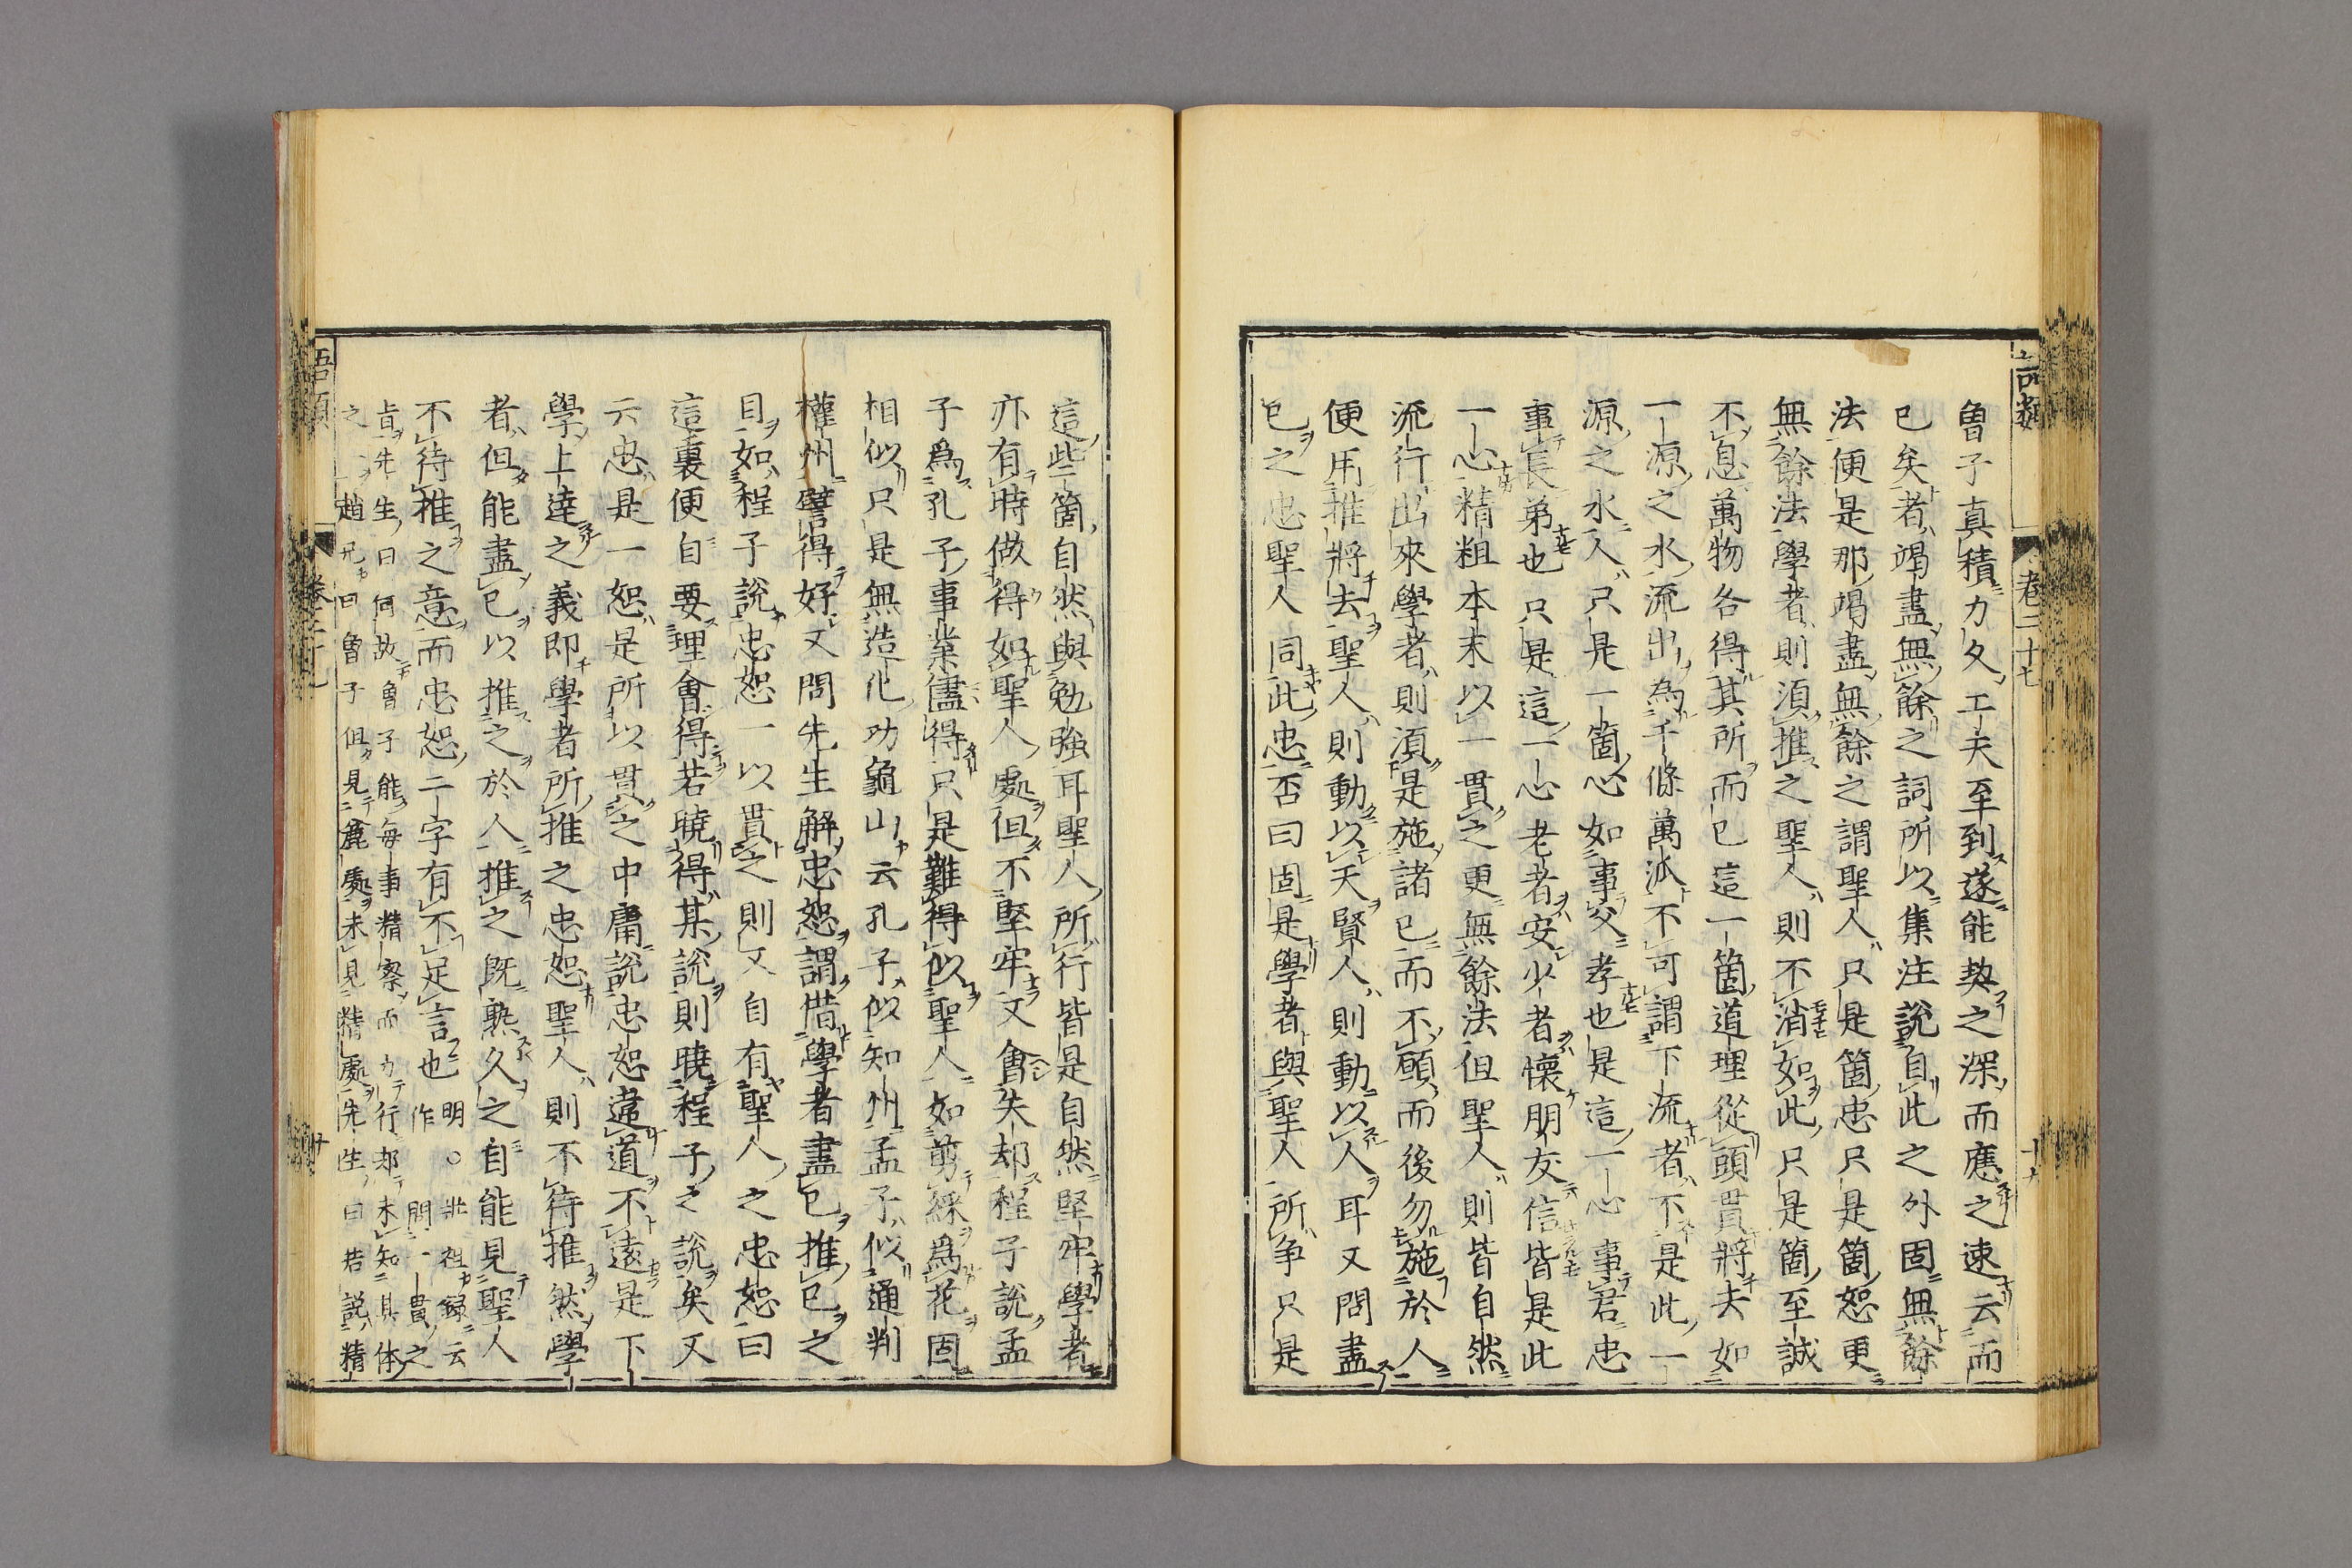 語類
卷二十七
十六
曾子真積力久工夫至到遂能契之深而應之速云而
已矣者竭盡無餘之詞所以集注說自此之外固無餘
法便是那竭盡無餘之謂聖人只是箇忠只是箇恕更
無餘法學者則須推之聖人則不消如此只是箇至誠
不息萬物各得其所而已這一箇道理從頭貫將去如
一源之水流出為千條萬派不可謂下流者不是此一
源之水人只是一箇心如事父孝也是這一心事君忠
事長弟也只是這一心老者安少者懷朋友信皆是此
一心精粗本末以一貫之更無餘法但聖人則皆自然
流行出來學者則須是施諸已而不願而後勿施於人
便用推將去聖人則動以天賢人則動以人耳又問盡
已之忠聖人同此忠否曰固是學者與聖人所爭只是
這些箇自然與勉強耳聖人所行皆是自然堅牢學者
亦有時做得如聖人處但不堅牢又會失却程子說孟
子爲孔子事業儘得只是難得似聖人如剪綵爲花固
相似只是無造化功龜山云孔子似知州孟子似通判
權州譬得好又問先生解忠恕謂借學者盡已推已之
目如程子說忠恕一以貫之則又自有聖人之忠恕曰
這裏便自要理會得若曉得某說則曉程子之說矣又
云忠是一恕是所以貫之中庸說忠恕違道不遠是下
學上達之義即學者所推之忠恕聖人則不待推然學
者但能盡已以推之於人推之既熟久之自能見聖人
不待推之意而忠恕二字有不足言也明作○壯祖錄云問一貫之
旨先生曰何故曾子能每事精察而力行却未知其体
之一趙兄曰曾子但見麁處未見精處先生曰若說精
語類
卷二十七